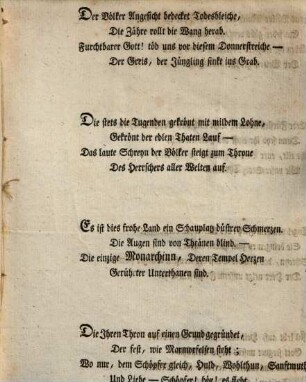 Der Völker Angesicht bedecket Todesbleiche,
Die Zähre rollt die Wang herab.
Furchtbarer Gott! töd uns vor diesem Donnerstreiche —
Der Greis, der Jüngling sinkt ins Grab.
Die stets die Tugenden gekrönt mit mildem Lohne,
Gekrönt der edlen Thaten Lauf —
Das laute Schreyn der Völker steigt zum Throne
Des Herrschers aller Welten auf.
Es ist dies frohe Land ein Schauplatz düstrer Schmerzen.
Die Augen sind von Thränen blind. —
Die einzige Monarchinn, Deren Tempel Herzen
Gerührter Unterthanen sind.
Die Ihren Thron auf einen Grund gegründet,
Der fest, wie Marmorfelsen steht;
Wo nur, dem Schöpfer gleich, Huld, Wohlthun, Sanftmuth
Und Liebe — Schöpfer! hör! es fleht